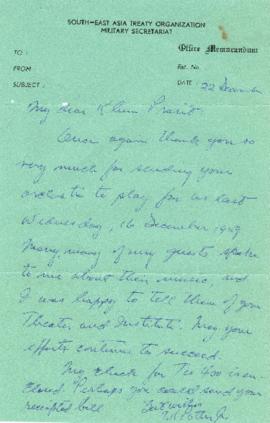 SOUTH-EAST ASIA TREATY ORGANIZATION
MILITARY SECRETARIAT
TO :
Office Memorandum
FROM :
Ref. No.
SUBJECT :
DATE : 22 December
My dear Khun Prasit
Once again thank you so
very much for sending your
orchestra to play for us last
Wednesday, 16 December 1959
Many, many of my guests spoke
to me about their music, and
I was happy to tell them of your
Theater and Institute. May your
efforts continue to succeed.
My check for Tcs 400 is en-
closed. Perhaps you could send your
receipted bill
Best wishes